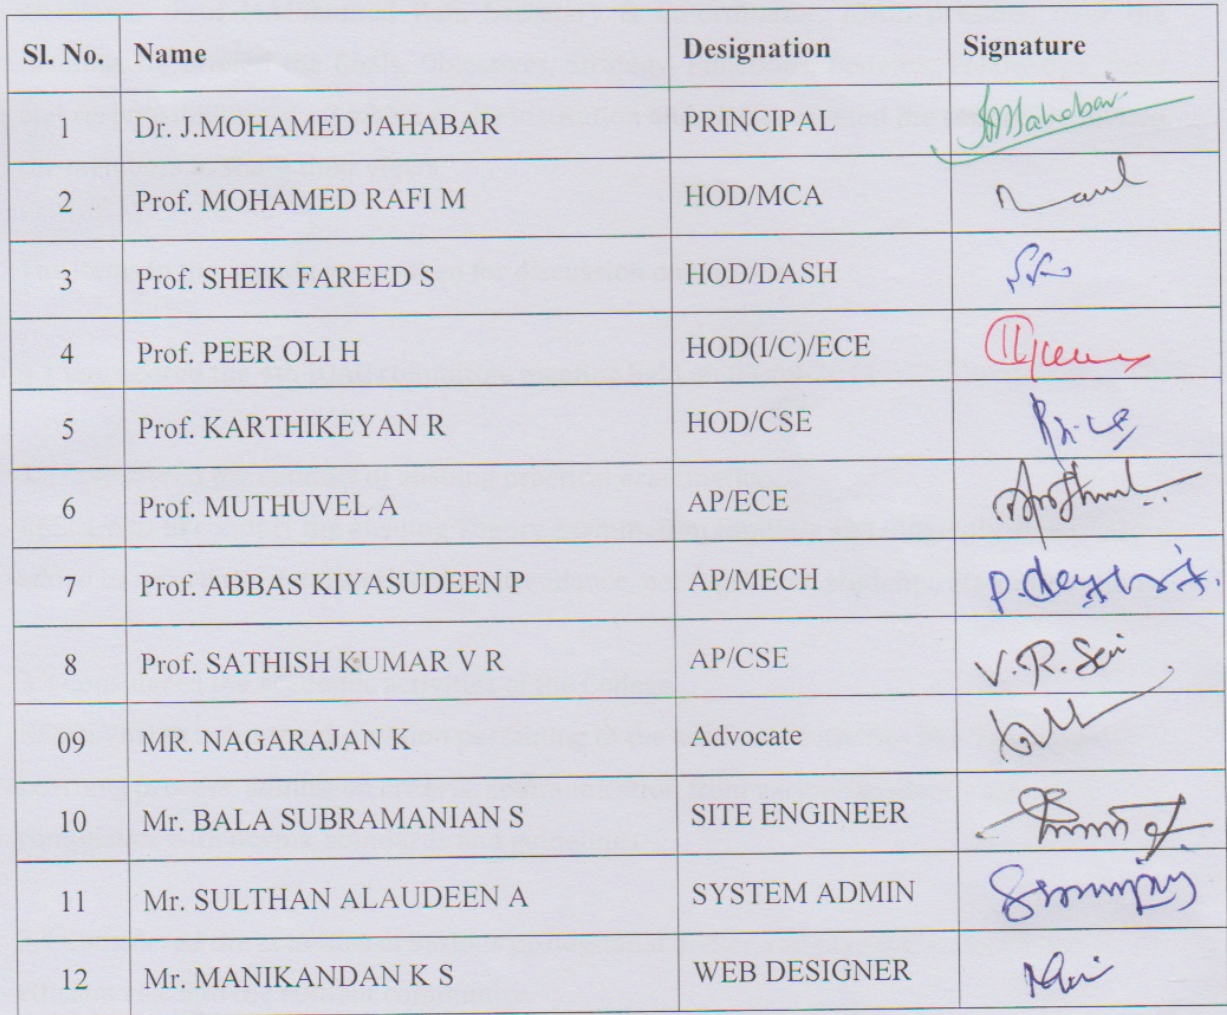 Sl. No. Name Designation Signature
1 Dr. J.MOHAMED JAHABAR PRINCIPAL
2 Prof. MOHAMED RAFI M HOD/MCA
3 Prof. SHEIK FAREED S HOD/DASH
4 Prof. PEER OLI H HOD(I/C)/ECE
5 Prof. KARTHIKEYAN R HOD/CSE
6 Prof. MUTHUVEL A AP/ECE
7 Prof. ABBAS KIYASUDEEN P AP/MECH
8 Prof. SATHISH KUMAR V R AP/CSE
09 MR. NAGARAJAN K Advocate
10 Mr. BALA SUBRAMANIAN S SITE ENGINEER
11 Mr. SULTHAN ALAUDEEN A SYSTEM ADMIN
12 Mr. MANIKANDAN K S WEB DESIGNER